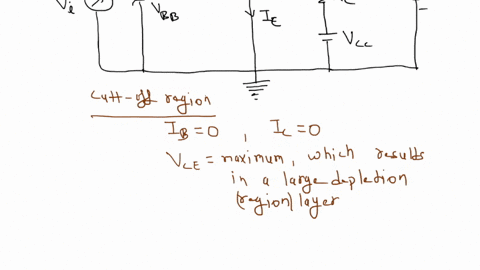 Vi
VBB
IE
VCC
Cutt-off region
IB=0 , IC=0
VCE = maximum, which results
in a large depletion
(region) layer